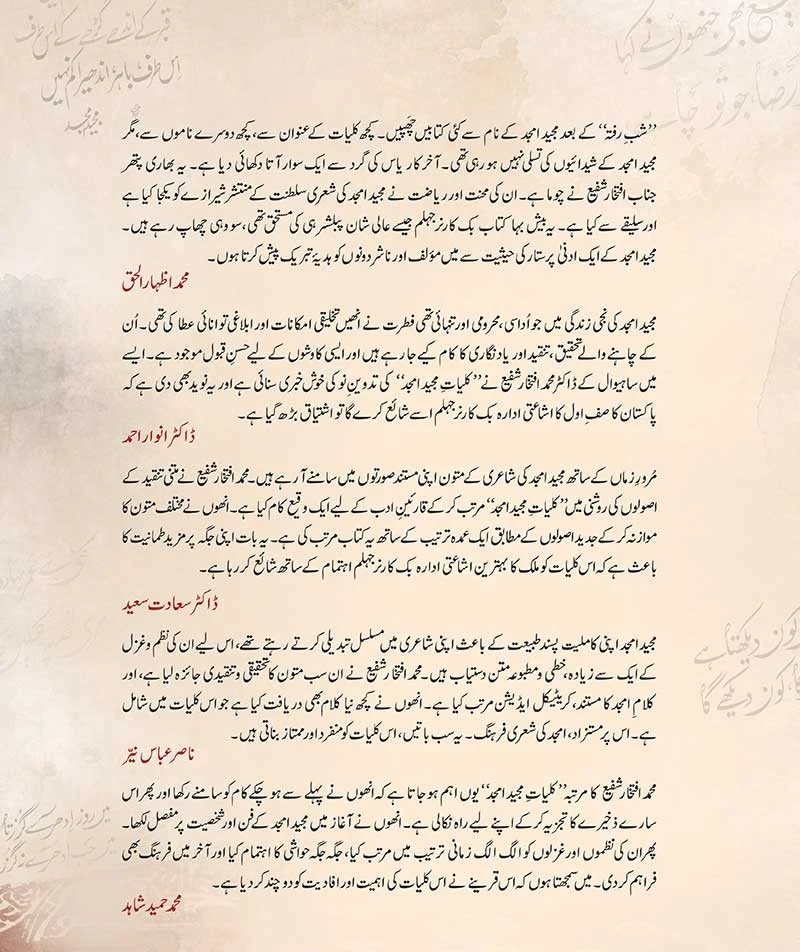 قبر کے اندھے گڑھے کے اس طرف
اس طرف باہر اندھیرا کم نہیں
مجید امجد
بھی جنھوں نے کہا
رضا جو تو
’’شبِ رفتہ‘‘ کے بعد مجید امجد کے نام سے کئی کتابیں چھپیں۔ کچھ کلیات کے عنوان سے، کچھ دوسرے ناموں سے، مگر
مجید امجد کے شیدائیوں کی تسلی نہیں ہو رہی تھی۔ آخر کار یاس کی گرد سے ایک سوار آتا دکھائی دیا ہے۔ یہ بھاری پتھر
جناب افتخار شفیع نے چوما ہے۔ ان کی محنت اور ریاضت نے مجید امجد کی شعری سلطنت کے منتشر شیرازے کو یکجا کیا ہے
اور سلیقے سے کیا ہے۔ یہ بیش بہا کتاب بک کارنر جہلم جیسے عالی شان پبلشر ہی کی مستحق تھی، سو وہی چھاپ رہے ہیں۔
مجید امجد کے ایک ادنیٰ پرستار کی حیثیت سے میں مؤلف اور ناشر دونوں کو ہدیۂ تبریک پیش کرتا ہوں۔
محمد اظہار الحق
مجید امجد کی نجی زندگی میں جو اُداسی، محرومی اور تنہائی تھی فطرت نے انھیں تخلیقی امکانات اور ابلاغی توانائی عطا کی تھی۔ اُن
کے چاہنے والے تحقیق، تنقید اور یاد نگاری کا کام کیے جا رہے ہیں اور ایسی کاوشوں کے لیے حسنِ قبول موجود ہے۔ ایسے
میں ساہیوال کے ڈاکٹر محمد افتخار شفیع نے ’’کلیاتِ مجید امجد‘‘ کی تدوینِ نو کی خوش خبری سنائی ہے اور یہ نوید بھی دی ہے کہ
پاکستان کا صفِ اول کا اشاعتی ادارہ بک کارنر جہلم اسے شائع کرے گا تو اشتیاق بڑھ گیا ہے۔
ڈاکٹر انوار احمد
مُرورِ زماں کے ساتھ مجید امجد کی شاعری کے متون اپنی مستند صورتوں میں سامنے آ رہے ہیں۔ محمد افتخار شفیع نے متنی تنقید کے
اصولوں کی روشنی میں ’’کلیاتِ مجید امجد‘‘ مرتب کر کے قارئینِ ادب کے لیے ایک وقیع کام کیا ہے۔ انھوں نے مختلف متون کا
موازنہ کر کے جدید اصولوں کے مطابق ایک عمدہ ترتیب کے ساتھ یہ کتاب مرتب کی ہے۔ یہ بات اپنی جگہ پر مزید طمانیت کا
باعث ہے کہ اس کلیات کو ملک کا بہترین اشاعتی ادارہ بک کارنر جہلم اہتمام کے ساتھ شائع کر رہا ہے۔
ڈاکٹر سعادت سعید
مجید امجد اپنی کاملیت پسند طبیعت کے باعث اپنی شاعری میں مسلسل تبدیلی کرتے رہتے تھے، اس لیے ان کی نظم و غزل
کے ایک سے زیادہ، خطی و مطبوعہ متن دستیاب ہیں۔ محمد افتخار شفیع نے ان سب متون کا تحقیقی و تنقیدی جائزہ لیا ہے، اور
کلامِ امجد کا مستند، کریٹیکل ایڈیشن مرتب کیا ہے۔ انھوں نے کچھ نیا کلام بھی دریافت کیا ہے جو اس کلیات میں شامل
ہے۔ اس پر مستزاد، امجد کی شعری فرہنگ۔ یہ سب باتیں، اس کلیات کو منفرد اور ممتاز بناتی ہیں۔
ناصر عباس نیّر
کون دیکھتا ہے
کون دیکھے گا
محمد افتخار شفیع کا مرتبہ ’’کلیاتِ مجید امجد‘‘ یوں اہم ہو جاتا ہے کہ انھوں نے پہلے سے ہو چکے کام کو سامنے رکھا اور پھر اس
سارے ذخیرے کا تجزیہ کر کے اپنے لیے راہ نکالی ہے۔ انھوں نے آغاز میں مجید امجد کے فن اور شخصیت پر مفصل لکھا۔
پھر ان کی نظموں اور غزلوں کو الگ الگ زمانی ترتیب میں مرتب کیا، جگہ جگہ حواشی کا اہتمام کیا اور آخر میں فرہنگ بھی
فراہم کر دی۔ میں سمجھتا ہوں کہ اس قرینے نے اس کلیات کی اہمیت اور افادیت کو دو چند کر دیا ہے۔
محمد حمید شاہد
میں روز ادھر سے گزرتا